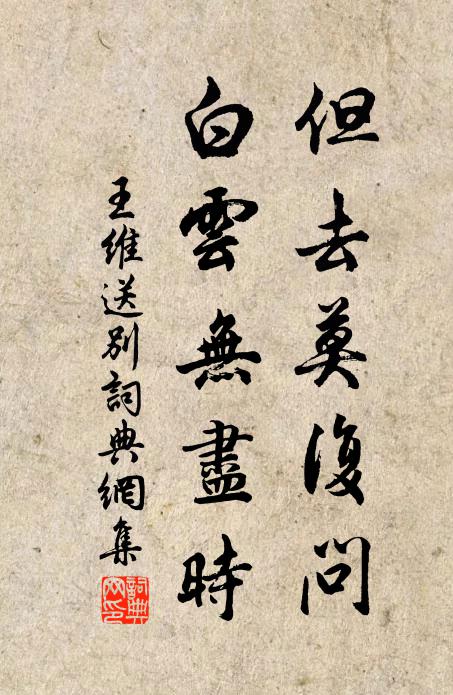 但去莫復問
白雲無盡時
王維送別詞典網集
詞典網印